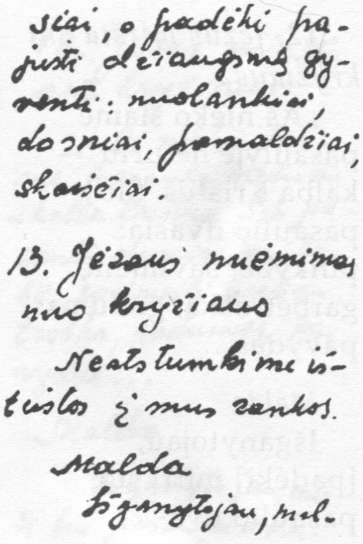 siai, o padėki pa-
justi džiaugsmą gy-
venti: nuolankiai,
dosniai, pamaldžiai,
skaisčiai.
13. Jėzaus nuėmimas
nuo kryžiaus
Neatstumkime iš-
tiestos į mus rankos.
Malda
Išganytojau, mel-